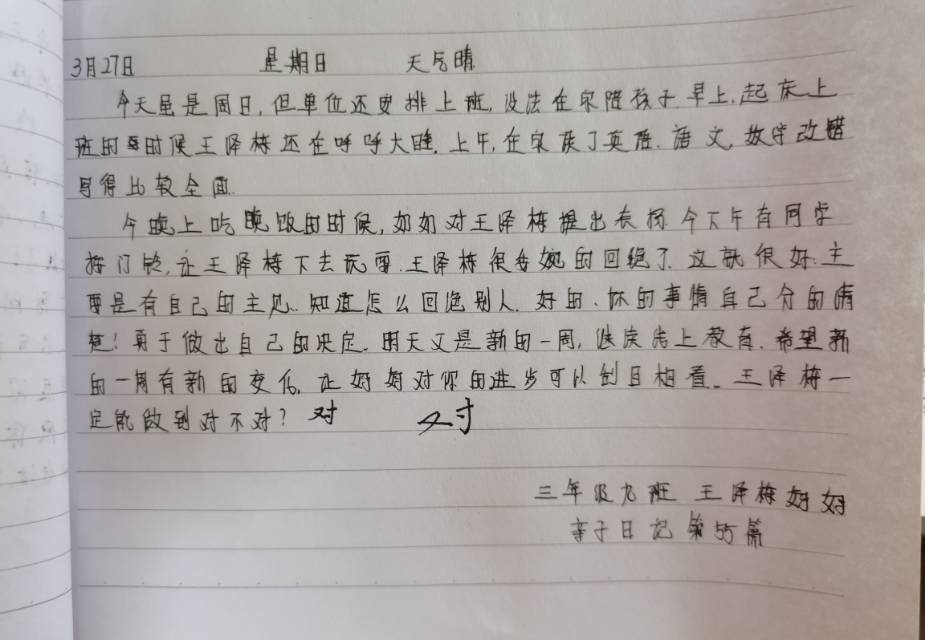 3月27日 星期日 天气晴
今天虽是周日,但单位还安排上班,没法在家陪孩子.早上,起床上
班的时候王泽栋还在呼呼大睡.上午,在家读了英语.语文,数学改错
写得比较全面.
今晚上吃晚饭的时候,妈妈对王泽栋提出表扬今下午有同学
按门铃,让王泽栋下去玩耍.王泽栋很委婉的回绝了.这就很好.主
要是有自己的主见.知道怎么回绝别人.好的、坏的事情自己分的清
楚!勇于做出自己的决定.明天又是新的一周,继续线上教育.希望新
的一周有新的变化.让妈妈对你的进步可以刮目相看。王泽栋一
定能做到对不对? 对 对
三年级九班 王泽栋妈妈
亲子日记 第55篇